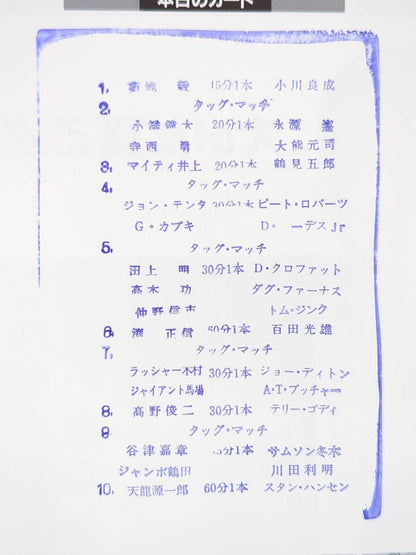 本日のカード
1. 菊池 毅 15分1本 小川良成
2. タッグ・マッチ
小橋健太 20分1本 永源 遙
寺西 勇 大熊元司
3. マイティ井上 20分1本 鶴見五郎
4. タッグ・マッチ
ジョン・テンタ 30分1本 ピート・ロバーツ
G・カブキ D・ ーデスJr
5. タッグ・マッチ
田上 明 30分1本 D・クロファット
高木 功 ダグ・ファーナス
仲野信市 トム・ジンク
6. 渕 正信 60分1本 百田光雄
7. タッグ・マッチ
ラッシャー木村 30分1本 ジョー・ディトン
ジャイアント馬場 A・T・ブッチャー
8. 高野俊二 30分1本 テリー・ゴディ
9 タッグ・マッチ
谷津嘉章 5分1本 サムソン冬木
ジャンボ鶴田 川田利明
10. 天龍源一郎 60分1本 スタン・ハンセン